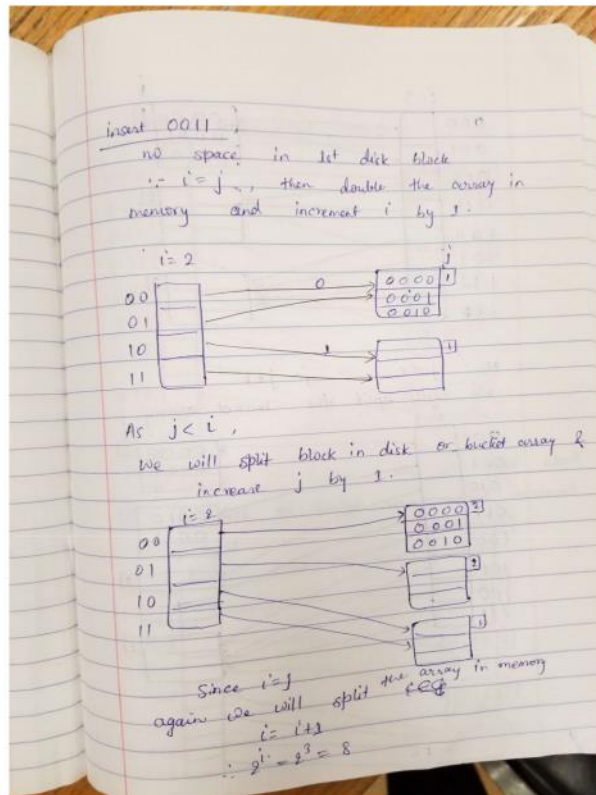 insert 0011 :
no space in 1st disk block
∵ i = j, then double the array in
memory and increment i by 1.
i = 2
j
00
01
10
11
0
0000
0001
0010
1
1
1
As j < i,
We will split block in disk or bucket array &
increase j by 1.
i = 2
00
01
10
11
0000
0001
0010
2
2
1
Since i = j
again we will split the array in memory
i = i+1
∴ 2^i = 2^3 = 8